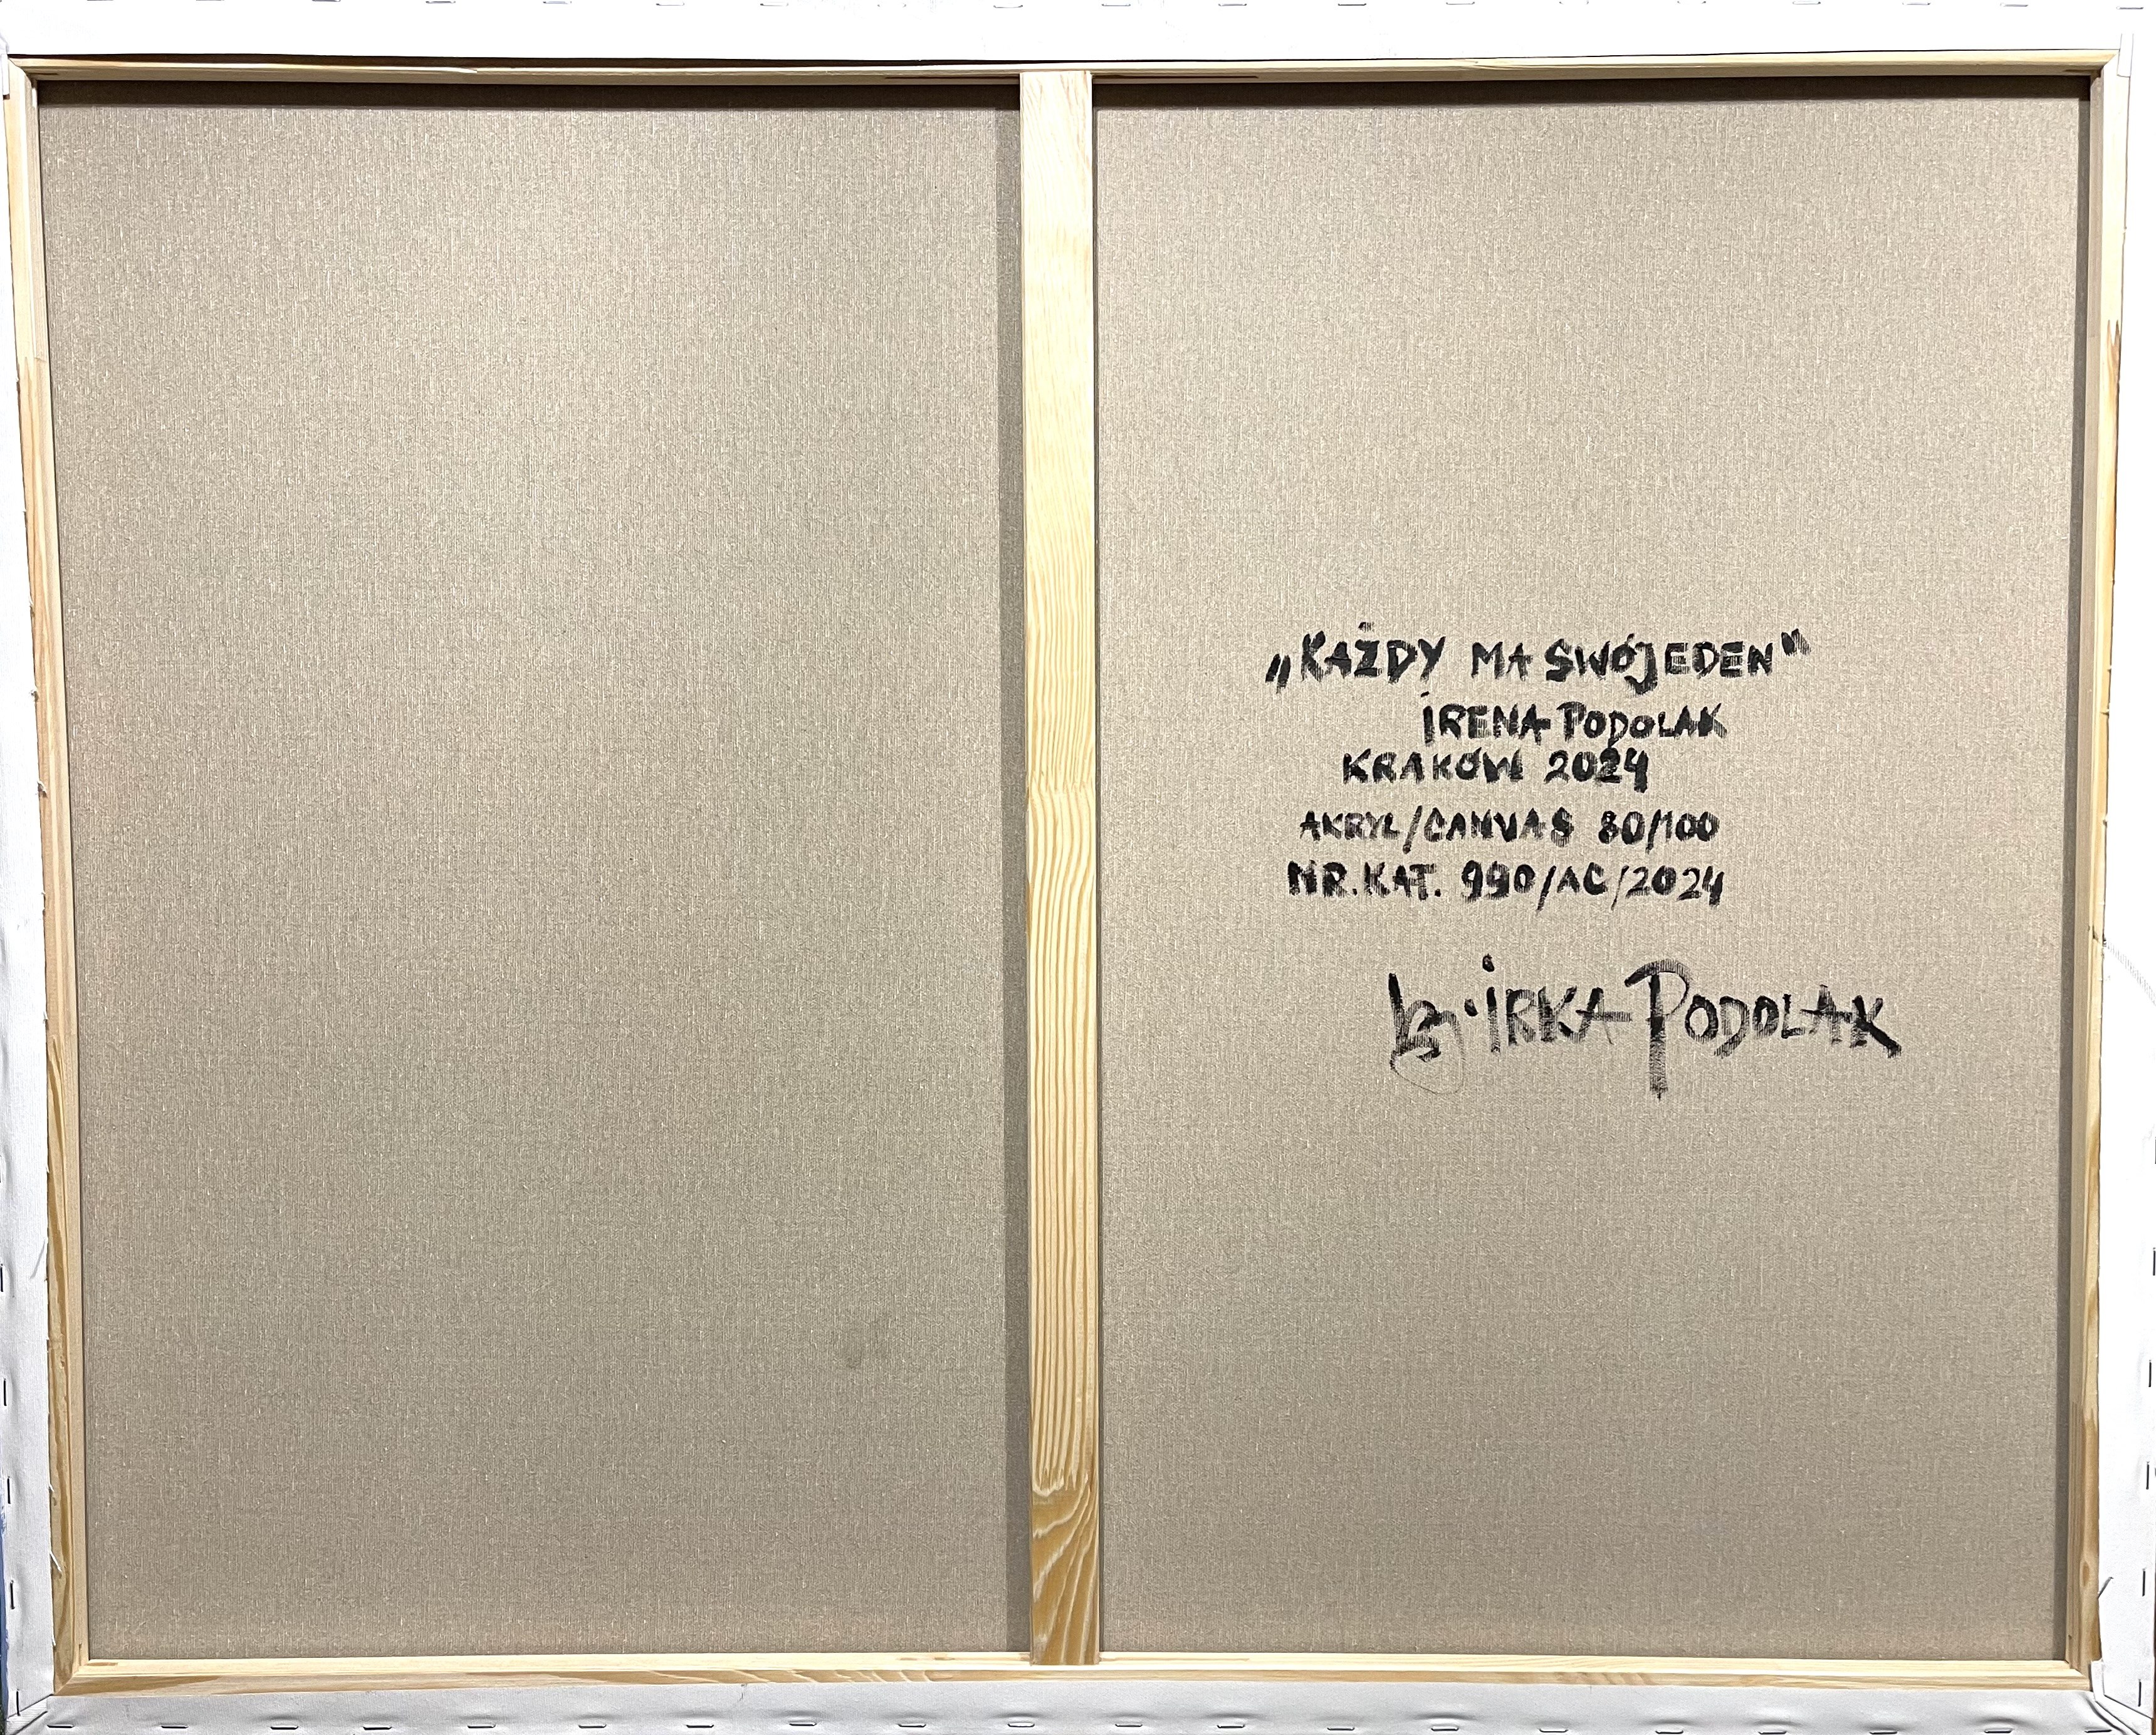 „KAŻDY MA SWÓJ EDEN"
IRENA PODOLAK
KRAKÓW 2024
AKRYL/CANVAS 80/100
NR.KAT. 990/AC/2024
by IRKA PODOLAK